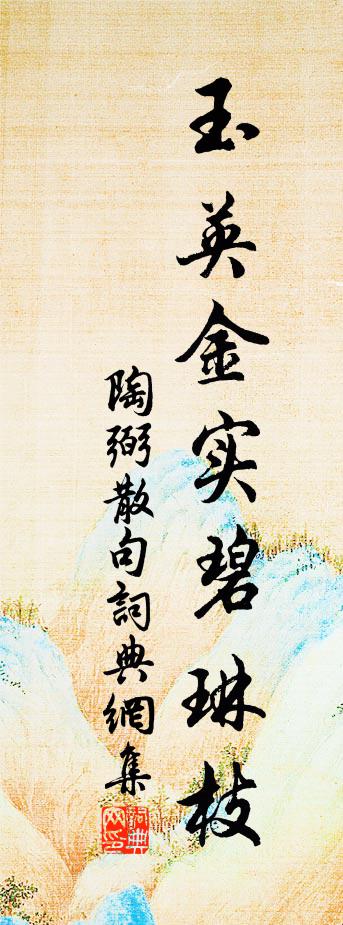 玉英金实碧琳枝
陶弼散句詞典網集
詞典网印